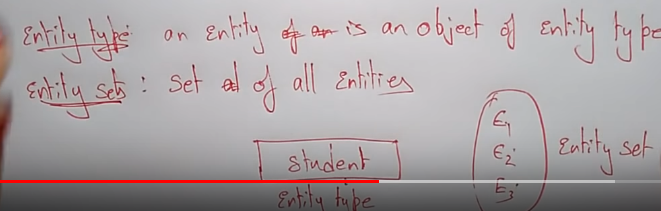 Entity type: an entity is an object of entity type
Entity set: set of all Entities
Student
Entity type
E1
E2
E3
Entity set